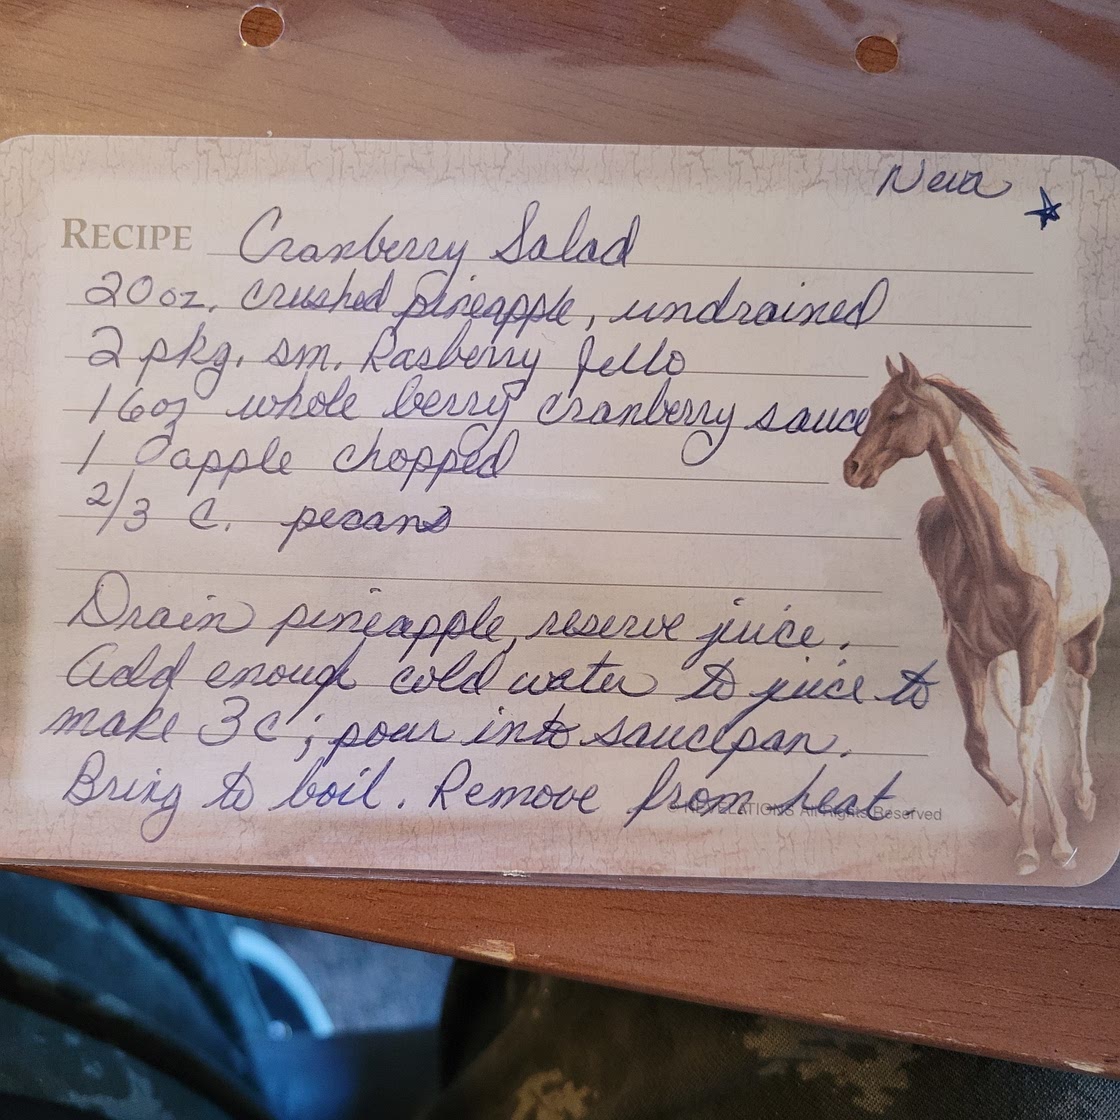 Neva
RECIPE Cranberry Salad
20 oz. crushed pineapple, undrained
2 pkg. sm. Rasberry Jello
16oz whole berry cranberry sauce
1 apple chopped
2/3 c. pecans
Drain pineapple, reserve juice.
Add enough cold water to juice to
make 3 c; pour into saucepan.
Bring to boil. Remove from heat.
© REVELATIONS All Rights Reserved